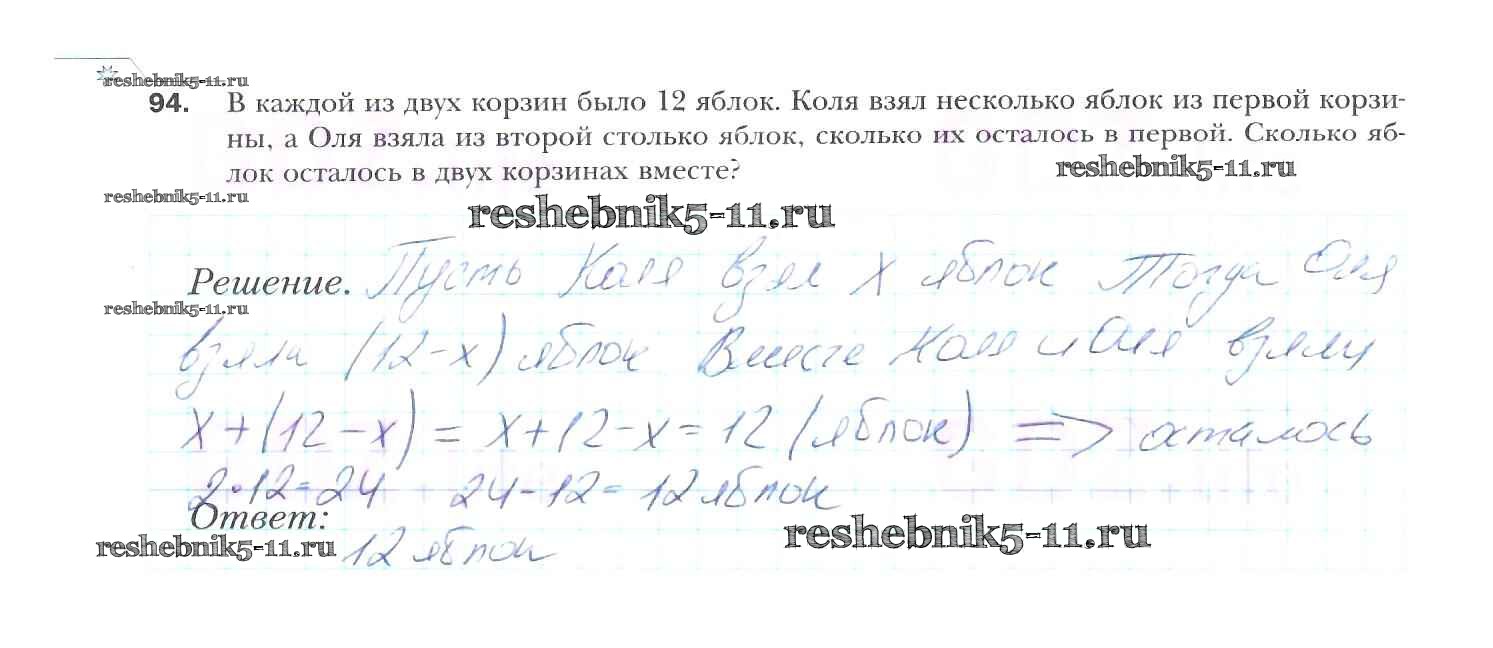 reshebnik5-11.ru
94. В каждой из двух корзин было 12 яблок. Коля взял несколько яблок из первой корзи-
ны, а Оля взяла из второй столько яблок, сколько их осталось в первой. Сколько яб-
лок осталось в двух корзинах вместе?
reshebnik5-11.ru
reshebnik5-11.ru
reshebnik5-11.ru
Решение. Пусть Коля взял x яблок Тогда Оля
reshebnik5-11.ru
взяла (12-x) яблок Вместе Коля и Оля взяли
x+(12-x) = x+12-x = 12 (яблок) => осталось
2·12=24 24-12=12 яблок
Ответ:
reshebnik5-11.ru
12 яблок
reshebnik5-11.ru